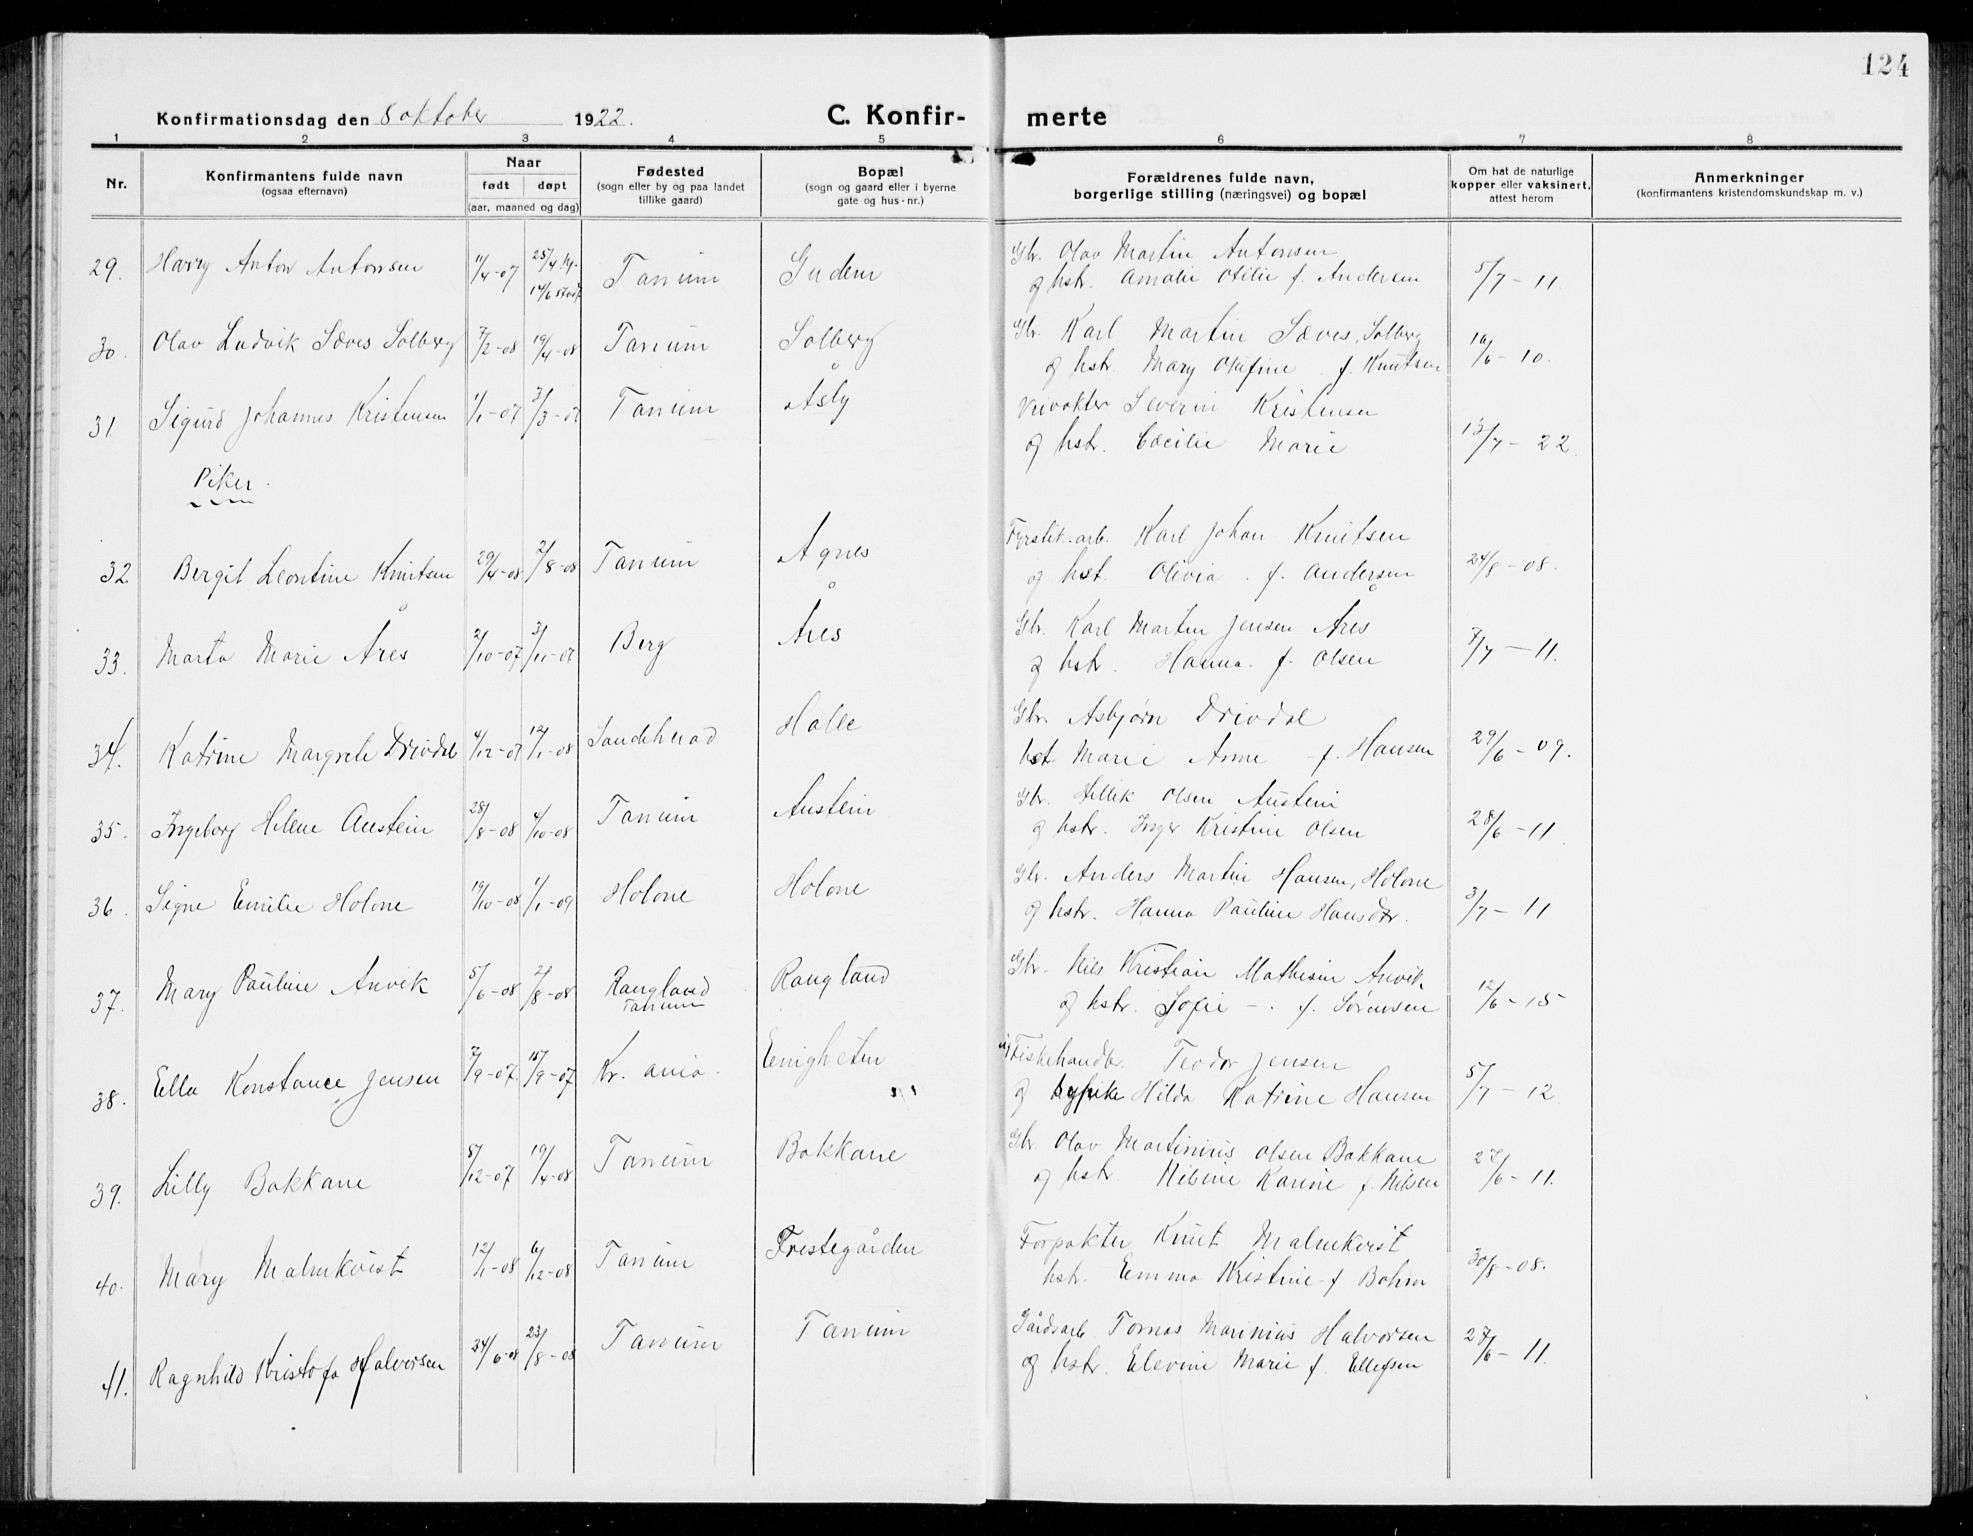 124
Konfirmationsdag den 8 oktober 1922.
C. Konfir- merte
1 2 3 4 5 6 7 8
Nr.
Konfirmantens fulde navn
(ogsaa efternavn)
Naar
født døpt
(aar, maaned og dag)
Fødested
(sogn eller by og paa landet
tillike gaard)
Bopæl
(sogn og gaard eller i byerne
gate og hus-nr.)
Forældrenes fulde navn,
borgerlige stilling (næringsvei) og bopæl
Om hat de naturlige
kopper eller vaksinert,
attest herom
Anmerkninger
(konfirmantens kristendomskundskap m. v.)
29. Harry Anton Antonsen 11/4-07 25/4 hj. 14/6 stadf. Tanum Gudem
Gbr. Olav Martin Antonsen
og hstr. Amalie Otilie f. Andersen 5/7-11.
30. Olav Ludvik Sæves Solberg 7/2-08 19/4-08 Tanum Solberg
Gbr. Karl Martin Sæves, Solberg
og hstr. Mary Olufine f. Knutsen 16/6-10.
31 Sigurd Johannes Kristensen 1/1-07 31/3-07 Tanum Åsly
Veivokter Severin Kristensen
og hstr. Cæcilie Marie 13/7-22.
Piker.
32 Bergit Leontine Knutsen 29/4-08 2/8-08 Tanum Agnes
Fyrstik.arb. Karl Johan Knutsen
og hst. Olivia f. Andersen 24/8-08.
33. Marta Marie Åres 2/10-07 3/11-07 Berg Åres
Gbr. Karl Martin Jensen Åres
og hstr. Hanna f. Olsen 7/7-11.
34. Katrine Margrete Drivdal 4/12-07 12/1-08 Sandeherad Halle
Gbr. Asbjørn Drivdal
hst Marie Anne f. Hansen 29/6-09.
35. Ingeborg Helene Austein 28/8-08 4/10-08 Tanum Austein
Gbr. Hellik Olsen Austein
og hstr. Inger Kristine Olsen 28/6-11.
36. Signe Emilie Holone 19/10-08 1/1-09 Holone Holone
Gbr. Anders Martin Hansen, Holone
og hstr. Hanna Pauline Hansdtr. 3/7-11
37. Mary Pauline Anvik 5/6-08 2/8-08 Raugland Tanum Raugland
Gbr. Nils Kristian Mathisen Anvik
og hstr. Sofie f. Sørensen 12/6-15
38. Ella Konstance Jensen 7/9-07. 15/9-07 Kr.ania. Enigheten
Fiskehandler Teodor Jensen
og Hilda Katrine Hansen 5/7-12.
39. Lilly Bakkane 5/12-07 19/4-08 Tanum Bakkane
Gbr. Olav Martinius Olsen Bakkane
og hstr. Nilsine Karine f. Nilsen 27/6-11.
40. Mary Malmkvist 12/1-08 6/12-08 Tanum Prestegården
Forpakter Knut Malmkvist
hstr. Emma Kristine f Bohm 30/8-08.
41. Ragnhild Kristofa Halvorsen 24/6-08 23/8-08 Tanum Tanum
Gårdsarb. Tomas Marinius Halvorsen
og hstr. Elevine Marie f. Ellefsen 27/6-11.